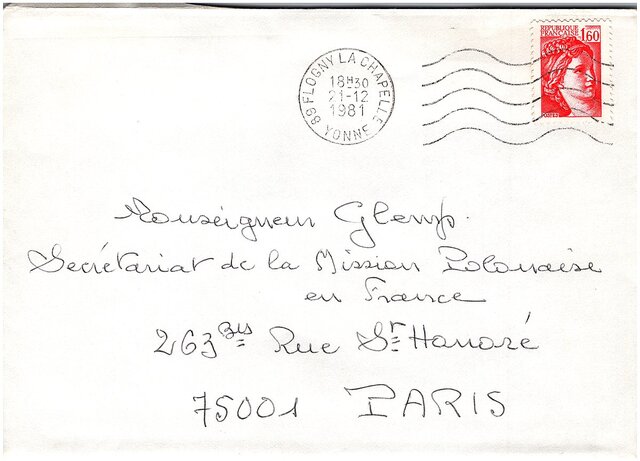 REPUBLIQUE FRANÇAISE 1,60
89 FLOGNY LA CHAPELLE
18H30
21-12
1981
YONNE
Monseigneur Glemp.
Secrétariat de la Mission Polonaise
en France
263 Bis Rue St Honoré
75001 PARIS